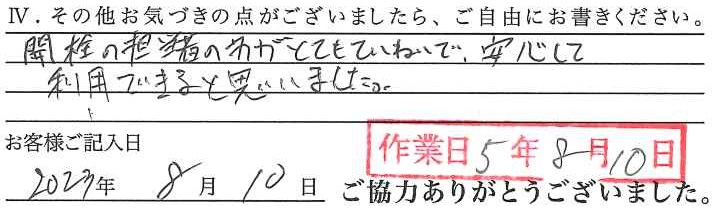 Ⅳ．その他お気づきの点がございましたら、ご自由にお書きください。
開栓の担当者の方がとてもていねいで、安心して
利用できると思いました。
お客様ご記入日
作業日5年8月10日
2023年 8月 10日 ご協力ありがとうございました。